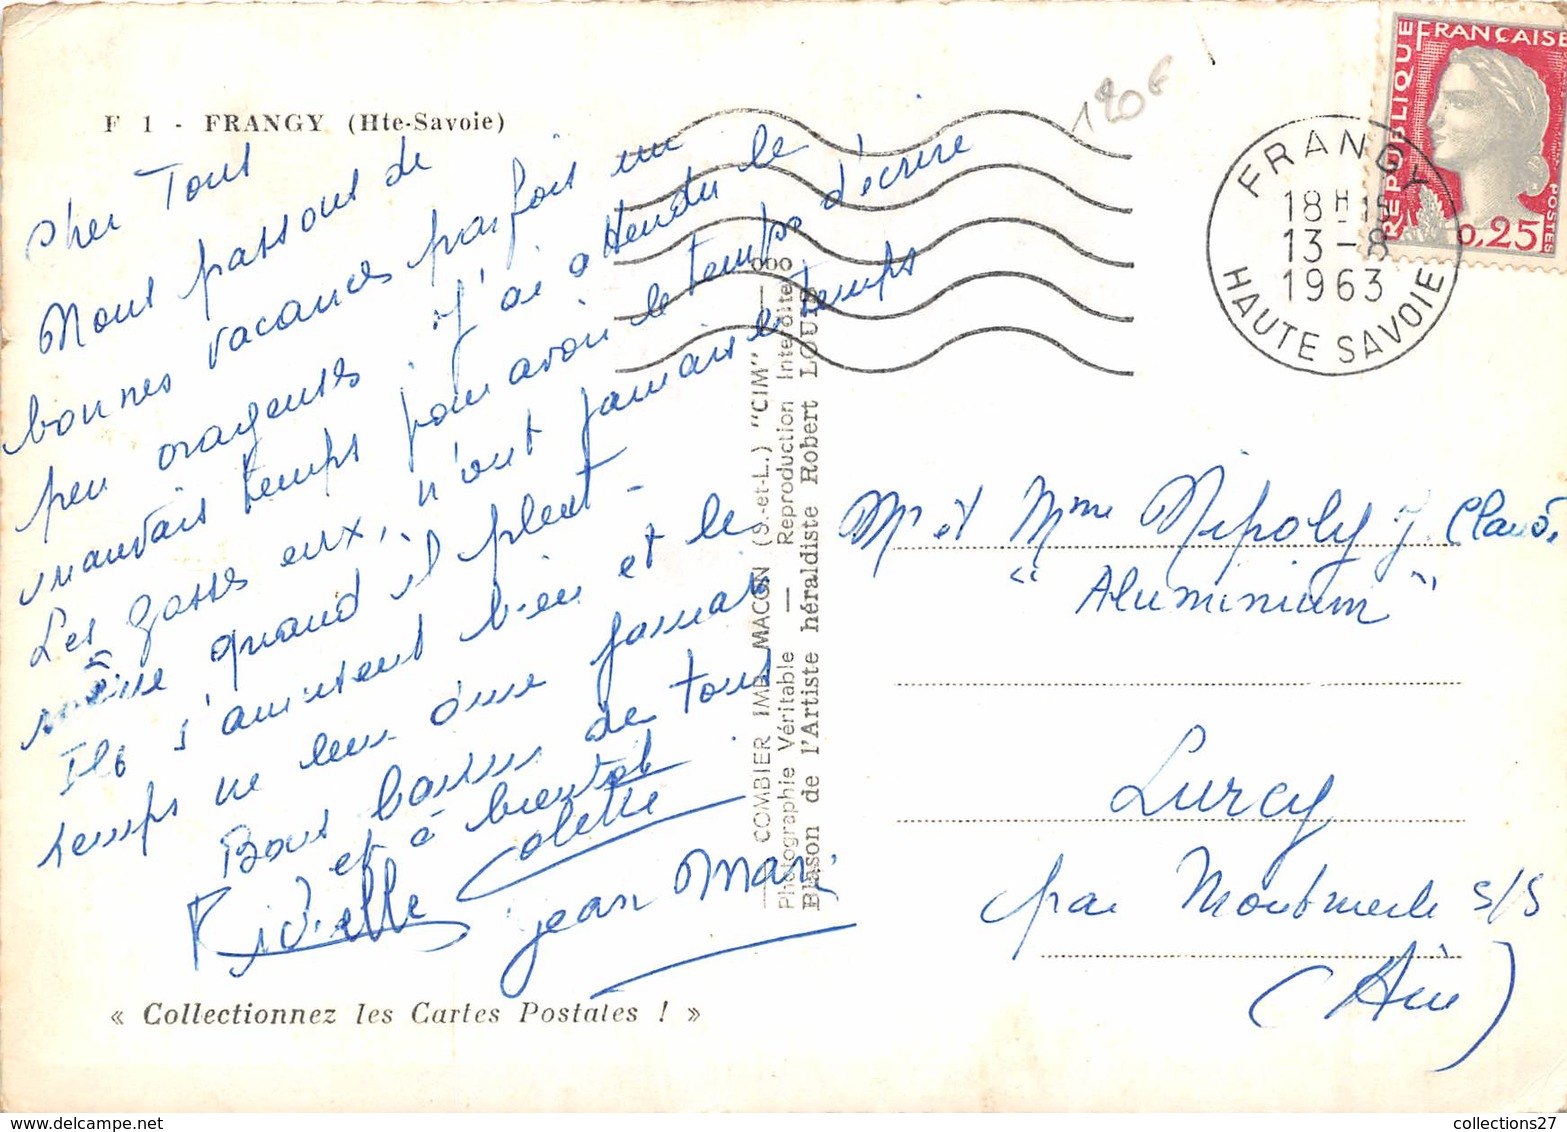 F 1 - FRANGY (Hte-Savoie)
Cher Tous
Nous passons de
bonnes vacances parfois un
peu orageuses. J'ai attendu le
mauvais temps pour avoir le temps d'écrire
Les gosses eux, n'ont jamais le temps
même quand il pleut -
Ils s'amusent bien et le
temps ne leur dure jamais
Bons baisers de tous
et à bientôt
Colette
Jean Mari
« Collectionnez les Cartes Postales ! »
COMBIER IMP. MACON (S.-et-L.) "CIM"
Photographie Véritable — Reproduction Interdite
Blason de l'Artiste héraldiste Robert LOUIS
120 €
FRANGY
18H15
13-8
1963
HAUTE SAVOIE
REPUBLIQUE FRANÇAISE
0,25
POSTES
Mr et Mme Nipoly J. Claude
"Aluminium"
Lurcy
par Montmerle s/S
(Ain)
collections27